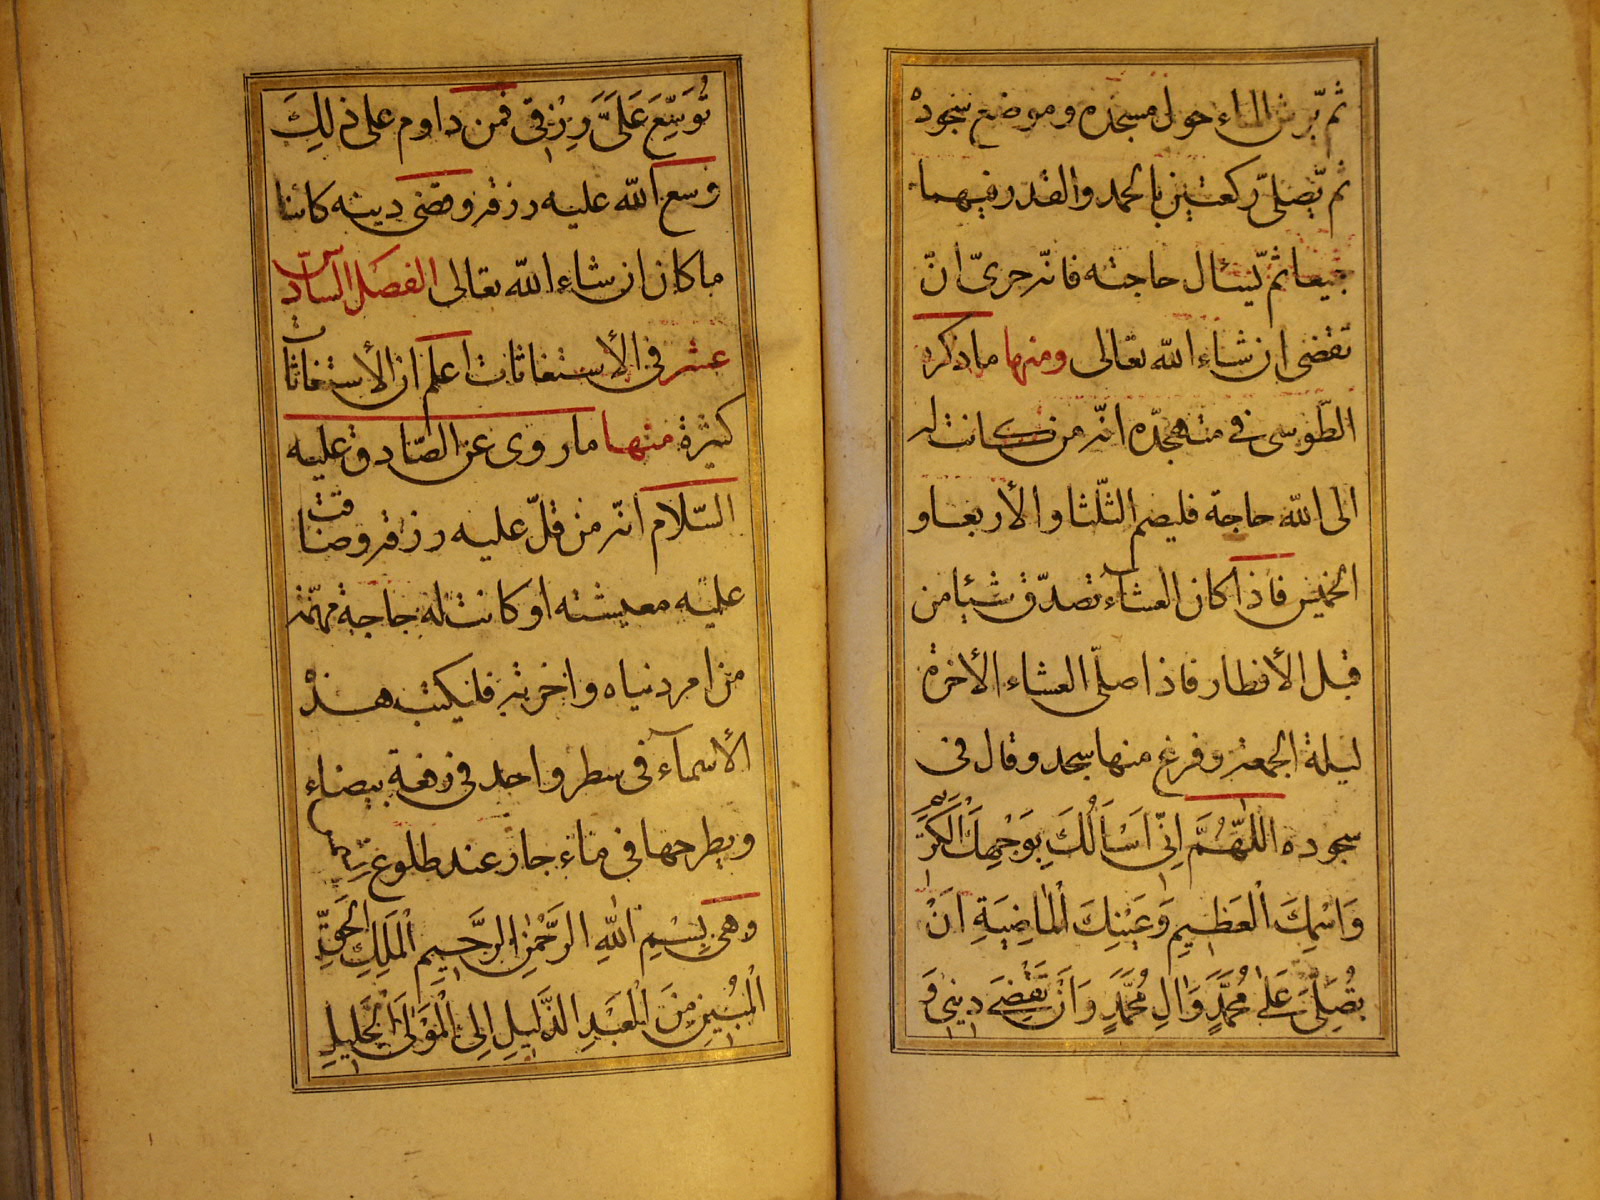 ثم يّرش الماء حول مسجده وموضع سجوده
ثم يّصلى ركعتين بالحمد والقدر فيهما
جميعا ثم يّسئال حاجته فانه حرىّ انّ
تقضى ان شاء الله تعالى ومنها ما ذكره
الطّوسى في متهجّده انّه من كانت له
الى الله حاجة فليصم الثّلثا والأربعا و
الخميس فاذا كان العشاء تصدّق شيئا من
قبل الأفطار فاذا صلّى العشاء الأخرة
ليلة الجمعة وفرغ منها سجد وقال فى
سجوده اللّهُمَّ اِنّى اَسْاَلُكَ بِوَجْهِكَ الْكَرِيْمِ
وَاسْمِكَ الْعَظِيمِ وَعَيْنِكَ الْمَاضِيَةِ اَنْ
تُصَلِّىَ عَلىٰ مُحَمَّدٍ وَالِ مُحَمَّدٍ وَاَنْ تَقْضِىَ دينى وَ
تُوَسِّعَ عَلَىَّ رِزْقى فمن داوم على ذلِكَ
وسع الله عليه رزقه وقضى دينه كائنا
ما كان ان شاء الله تعالى الفصل السّادس
عشر فى الأستغاثات اعلم ان الأستغاثات
كثيرة منها ما روى عن الصّادق عليه
السّلام انّه من قلّ عليه رزقه وضاقت
عليه معيشته او كانت له حاجة مهمّة
من امر دنياه واخرته فليكتب هذه
الأسمآء فى سطر واحد فى رقعة بيضاء
ويطرحها فى مآء جار عند طلوع الشمس
وهى بِسْمِ اللهِ الرَّحْمٰنِ الرَّحيمِ الْمَلِكِ الْحَقِّ
الْمُبينِ مِنَ الْعَبْدِ الذَّليلِ اِلىَ الْمَوْلىَ الْجَليلِ